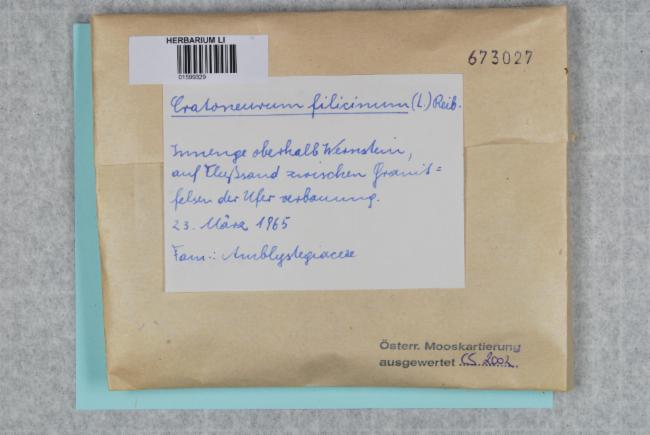 HERBARIUM LI
01599329
673027
Cratoneurum filicinum (L.) Reib.
Innenge oberhalb Wernstein,
auf Flußsand zwischen Granit=
felsen der Ufer verbauung.
23. März 1965
Fam.: Amblystegiaceae
Österr. Mooskartierung
ausgewertet CS 2002.